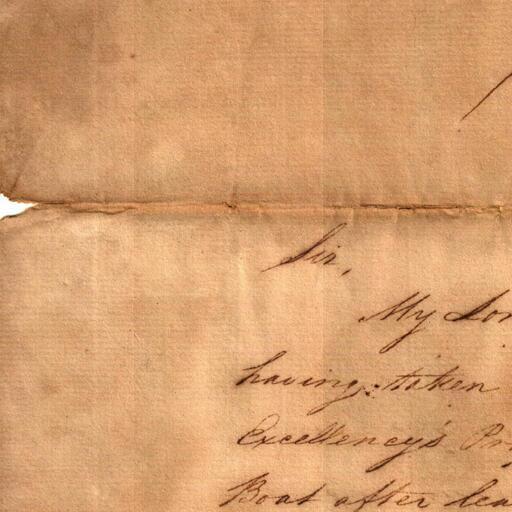 Sir,
My Lor
having taken
Excellency's Pr
Boat after lea